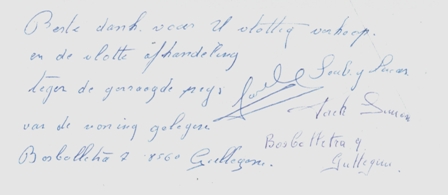 Beste dank voor U vlottig verkoop
en de vlotte afhandeling
teger de gevraagde prys
van de woning gelegen
Bosballetra 7 8560 Gullegem.
Jack Simon
Bosballetra 9
Gullegem.